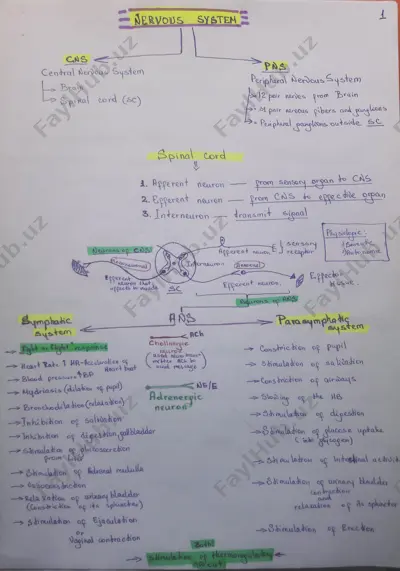 NERVOUS SYSTEM
1
CNS
Central Nervous System
Brain
Spinal cord (SC)
PNS
Peripheral Nervous System
12 pair nerves from Brain
31 pair nervous fibers and ganglions
Peripheral ganglions outside SC
Spinal cord
1. Afferent neuron — from sensory organ to CNS
2. Efferent neuron — from CNS to effective organ
3. Interneuron — transmit signal
Neurons of CNS
Afferent neuron
sensory
receptor
Interneuron
SC
Efferent neuron
Effector
tissue
Neurons of ANS
Sympathetic
system
ANS
Parasympathetic
system
Fight or Flight
ACh
Cholinergic
neuron
Heart Rate ↑ HR
Heart beat
Blood pressure ↑ BP
Mydriasis (dilation of pupil)
NE/E
Adrenergic
neuron
Bronchodilation (relaxation)
Inhibition of salivation
Inhibition of digestion, gallbladder
Stimulation of
Stimulation of Adrenal medulla
Vasoconstriction
Relaxation of urinary bladder
(Constriction of its sphincter)
Stimulation of Ejaculation
or
Vaginal contraction
Constriction of pupil
Stimulation of salivation
Constriction of airways
Slowing of the HB
Stimulation of digestion
Stimulation of glucose uptake
(into glycogen)
Stimulation of Intestinal activity
Stimulation of urinary bladder
contraction
and
relaxation of its sphincter
Stimulation of Erection
Both
Stimulation of
FaylHub.uz
FaylHub.uz
FaylHub.uz
FaylHub.uz